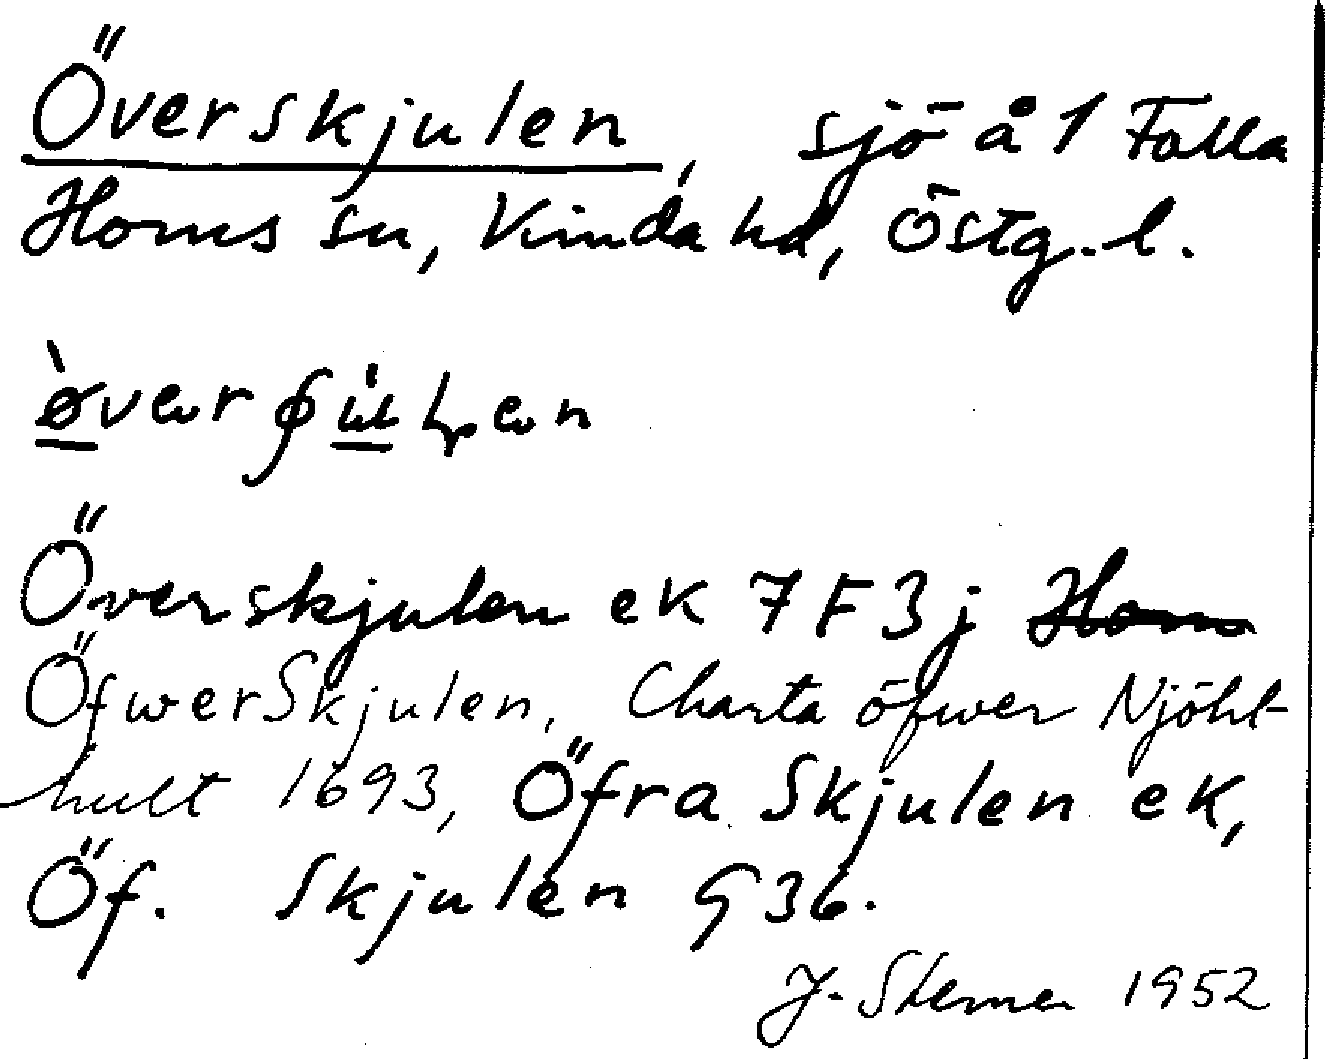 Överskjulen, sjö å 1 Falla
Horns sn, Kinda hd, Östg. l.
Överskjulen ek 7 F 3 j Horn
ÖfwerSkjulen, Charta öfwer Njöhl-
hult 1693, Öfra Skjulen ek,
Öf. Skjulen G 36.
J. Sterner 1952